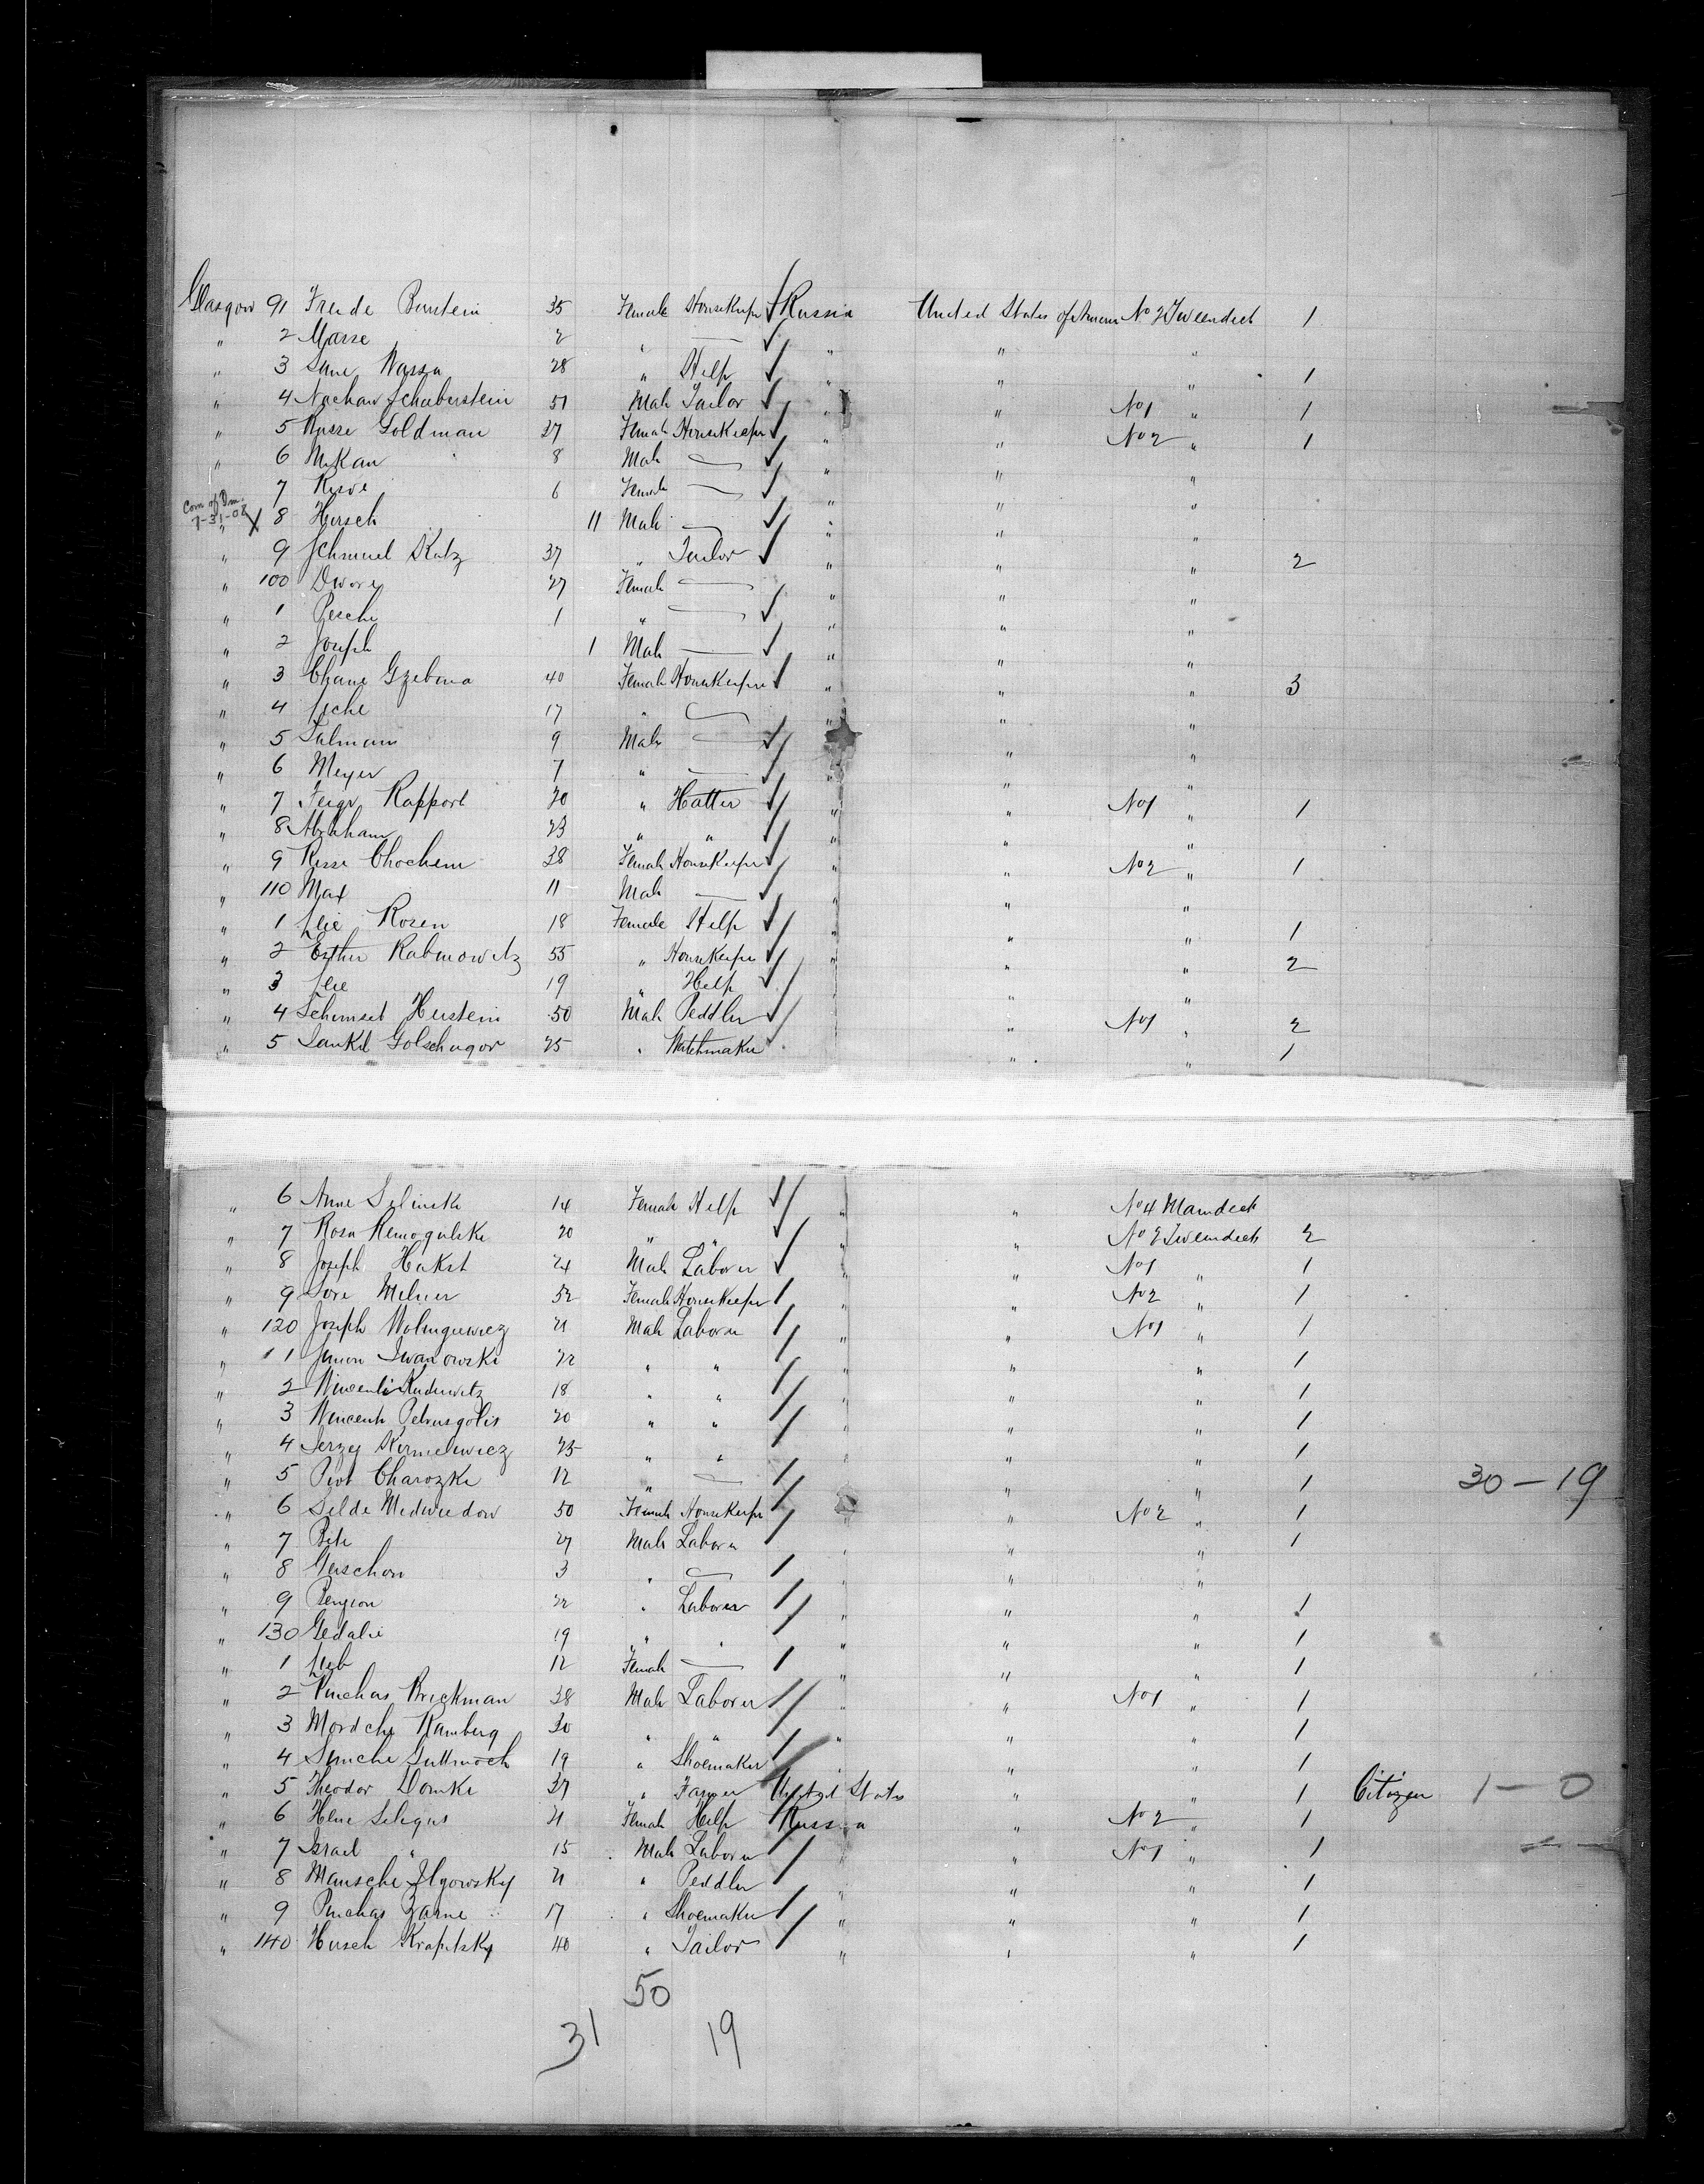 Glasgow 91 Freude Burstein 35 Female Housekeeper Russia United States of Americ No 2 Tweendeck 1
" 2 Masse 2 " — " " "
" 3 Sane Wassa 28 " Help " " " 1
" 4 Nachaw Schuberstein 51 Male Tailor " " No 1 " 1
" 5 Rosse Goldman 27 Female Housekeeper " " No 2 " 1
" 6 Mekan 8 Male — " " "
" 7 Reswe 6 Female — " " "
Com of Im. 7-31-08
" X 8 Hirsch 11 Male — " " "
" 9 Schmuel Katz 37 " Tailor " " " 2
" 100 Dwore 27 Female — " " "
" 1 Pesche 1 " — " " "
" 2 Joseph 1 Male — " " "
" 3 Chane Gzebina 40 Female Housekeeper " " " 3
" 4 17 " — " " "
" 5 Salmam 9 Male — " " "
" 6 Meyer 7 " — " " "
" 7 Feige Rapport 20 " Hatter " " No 1 " 1
" 8 Abraham 23 " " " " "
" 9 Risse Chochem 38 Female Housekeeper " " No 2 " 1
" 110 Max 11 Male — " "
" 1 Rosen 18 Female Help " " " 1
" 2 Esther Rabinowitz 55 " Housekeeper " " " 2
" 3 19 " Help " "
" 4 Schimsel Herstein 50 Male Peddler " No 1 " 2
" 5 Jankel Golschugor 25 " Watchmaker " " 1
" 6 Anne Selinske 14 Female Help " " No 4 Maindeck
" 7 Rosa Remogulske 20 " " " " No 2 Tweendeck 2
" 8 Joseph Hakst 24 Male Laborer " " No 1 " 1
" 9 Sore Melner 52 Female Housekeeper " " No 2 " 1
" 120 Joseph Wolngiewicz 21 Male Laborer " " No 1 " 1
" 11 Simon Iwanowski 22 " " " " " 1
" 2 Wincenti Kudewitz 18 " " " " " 1
" 3 Wincenti Petrusgolis 20 " " " " " 1
" 4 Jerzey Kirmelewicz 25 " " " " " 1
" 5 Piot Charozke 12 " — " " " 1 30 – 19
" 6 Selde Medwiedow 50 Female Housekeeper " " No 2 " 1
" 7 Bete 27 Male Laborer " " " 1
" 8 Gerschon 3 " — " " "
" 9 Benzion 22 " Laborer " " " 1
" 130 Gedalie 19 " " " " " 1
" 1 Lieb 12 Female — " " " 1
" 2 Pinchas Brickman 38 Male Laborer " " No 1 " 1
" 3 Mordche Ramberg 30 " " " " " 1
" 4 Simche Guttmoch 19 " Shoemaker " " 1
" 5 Theodor Domke 37 " Farmer United States " " 1 Citizen 1 – 0
" 6 Hene Seligus 21 Female Help Russia " No 2 " 1
" 7 Israel " 15 Male Laborer " " No 1 " 1
" 8 Mansche Ilgowsky 21 " Peddler " " " 1
" 9 Pinchas Zarne 17 " Shoemaker " " " 1
" 140 Hirsch Krapitsky 40 " Tailor " " " 1
50
31 19